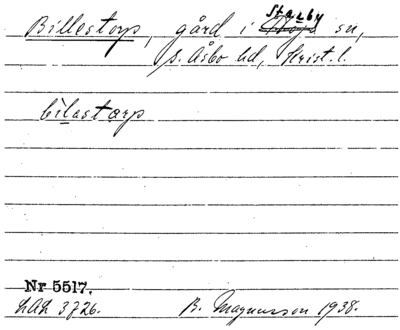 Starby
Billestorp, gård i sn,
s. Åsbo hd, Krist. l.
bilastarp
Nr 5517.
LAL 3726. B. Magnusson 1938.